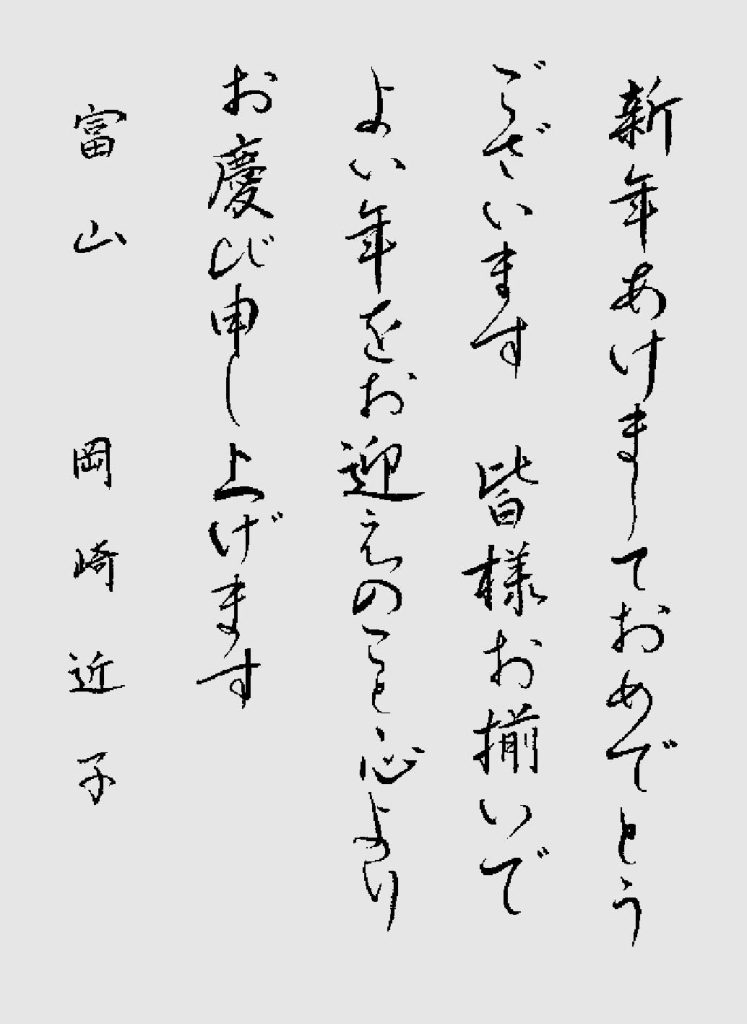 新年あけましておめでとう
ございます　皆様お揃いで
よい年をお迎えのこと心より
お慶び申し上げます
富山　岡崎近子